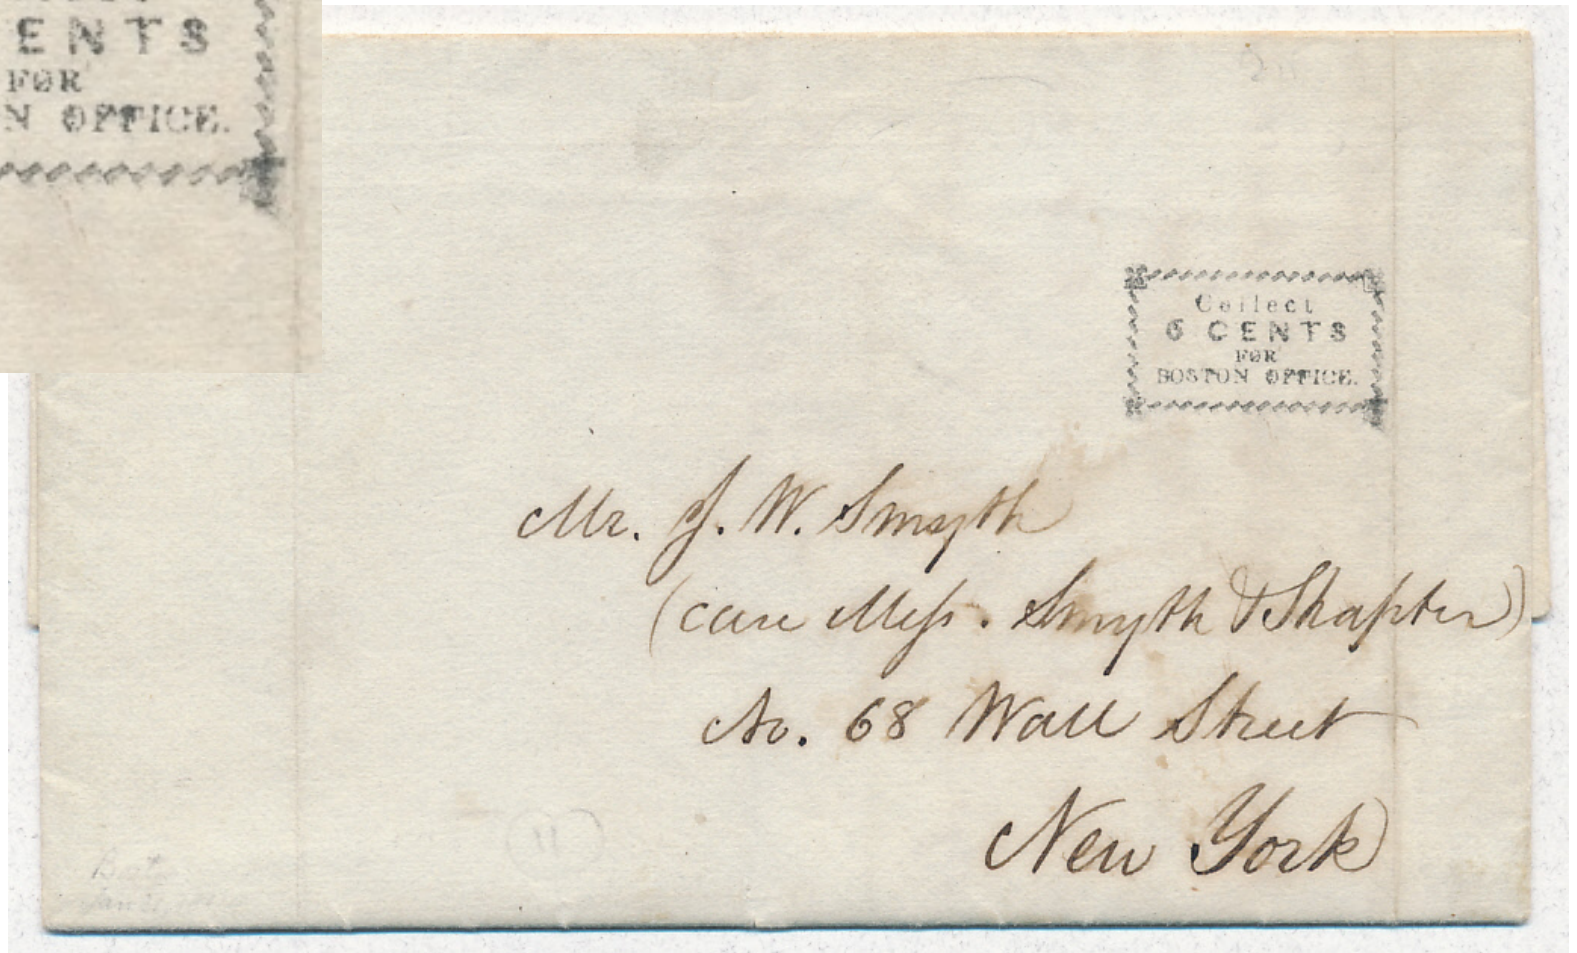 ENTS
FOR
N OFFICE.
Collect
6 CENTS
FOR
BOSTON OFFICE.
Mr. J. W. Smyth
(care Mess. Smyth & Shapter)
No. 68 Wall Street
New York